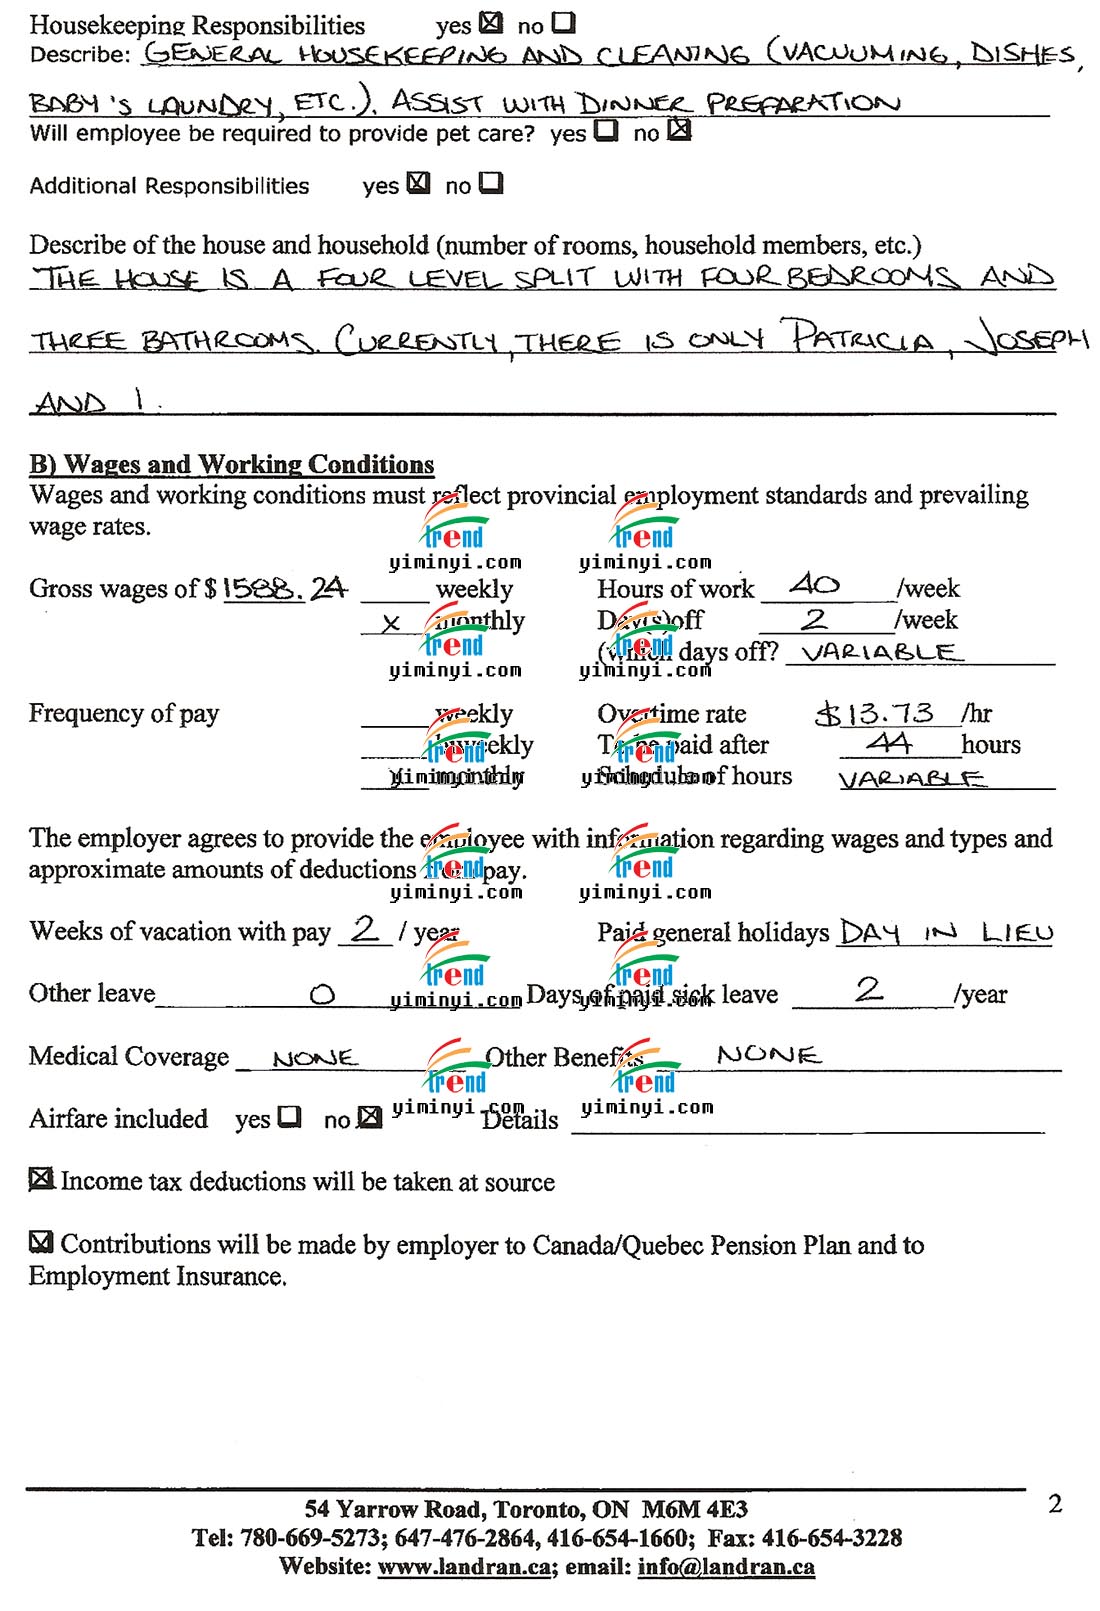 Housekeeping Responsibilities yes ☒ no ☐
Describe: GENERAL HOUSEKEEPING AND CLEANING (VACUUMING, DISHES,
BABY'S LAUNDRY, ETC.). ASSIST WITH DINNER PREPARATION
Will employee be required to provide pet care? yes ☐ no ☒
Additional Responsibilities yes ☒ no ☐
Describe of the house and household (number of rooms, household members, etc.)
THE HOUSE IS A FOUR LEVEL SPLIT WITH FOUR BEDROOMS AND
THREE BATHROOMS. CURRENTLY, THERE IS ONLY PATRICIA, JOSEPH
AND I.
B) Wages and Working Conditions
Wages and working conditions must reflect provincial employment standards and prevailing
wage rates.
trend trend
yiminyi.com yiminyi.com
Gross wages of $ 1588.24 ____ weekly Hours of work 40 /week
x monthly Day(s) off 2 /week
trend trend
(which days off? VARIABLE
yiminyi.com yiminyi.com
Frequency of pay ____ weekly Overtime rate $13.73 /hr
____ biweekly To be paid after 44 hours
trend trend
x monthly Schedule of hours VARIABLE
yiminyi.com yiminyi.com
The employer agrees to provide the employee with information regarding wages and types and
approximate amounts of deductions from pay.
trend trend
yiminyi.com yiminyi.com
Weeks of vacation with pay 2 / year Paid general holidays DAY IN LIEU
trend trend
Other leave 0 Days of paid sick leave 2 /year
yiminyi.com yiminyi.com
Medical Coverage NONE Other Benefits NONE
trend trend
yiminyi.com yiminyi.com
Airfare included yes ☐ no ☒ Details ____
☒ Income tax deductions will be taken at source
☒ Contributions will be made by employer to Canada/Quebec Pension Plan and to
Employment Insurance.
54 Yarrow Road, Toronto, ON M6M 4E3 2
Tel: 780-669-5273; 647-476-2864, 416-654-1660; Fax: 416-654-3228
Website: www.landran.ca; email: info@landran.ca